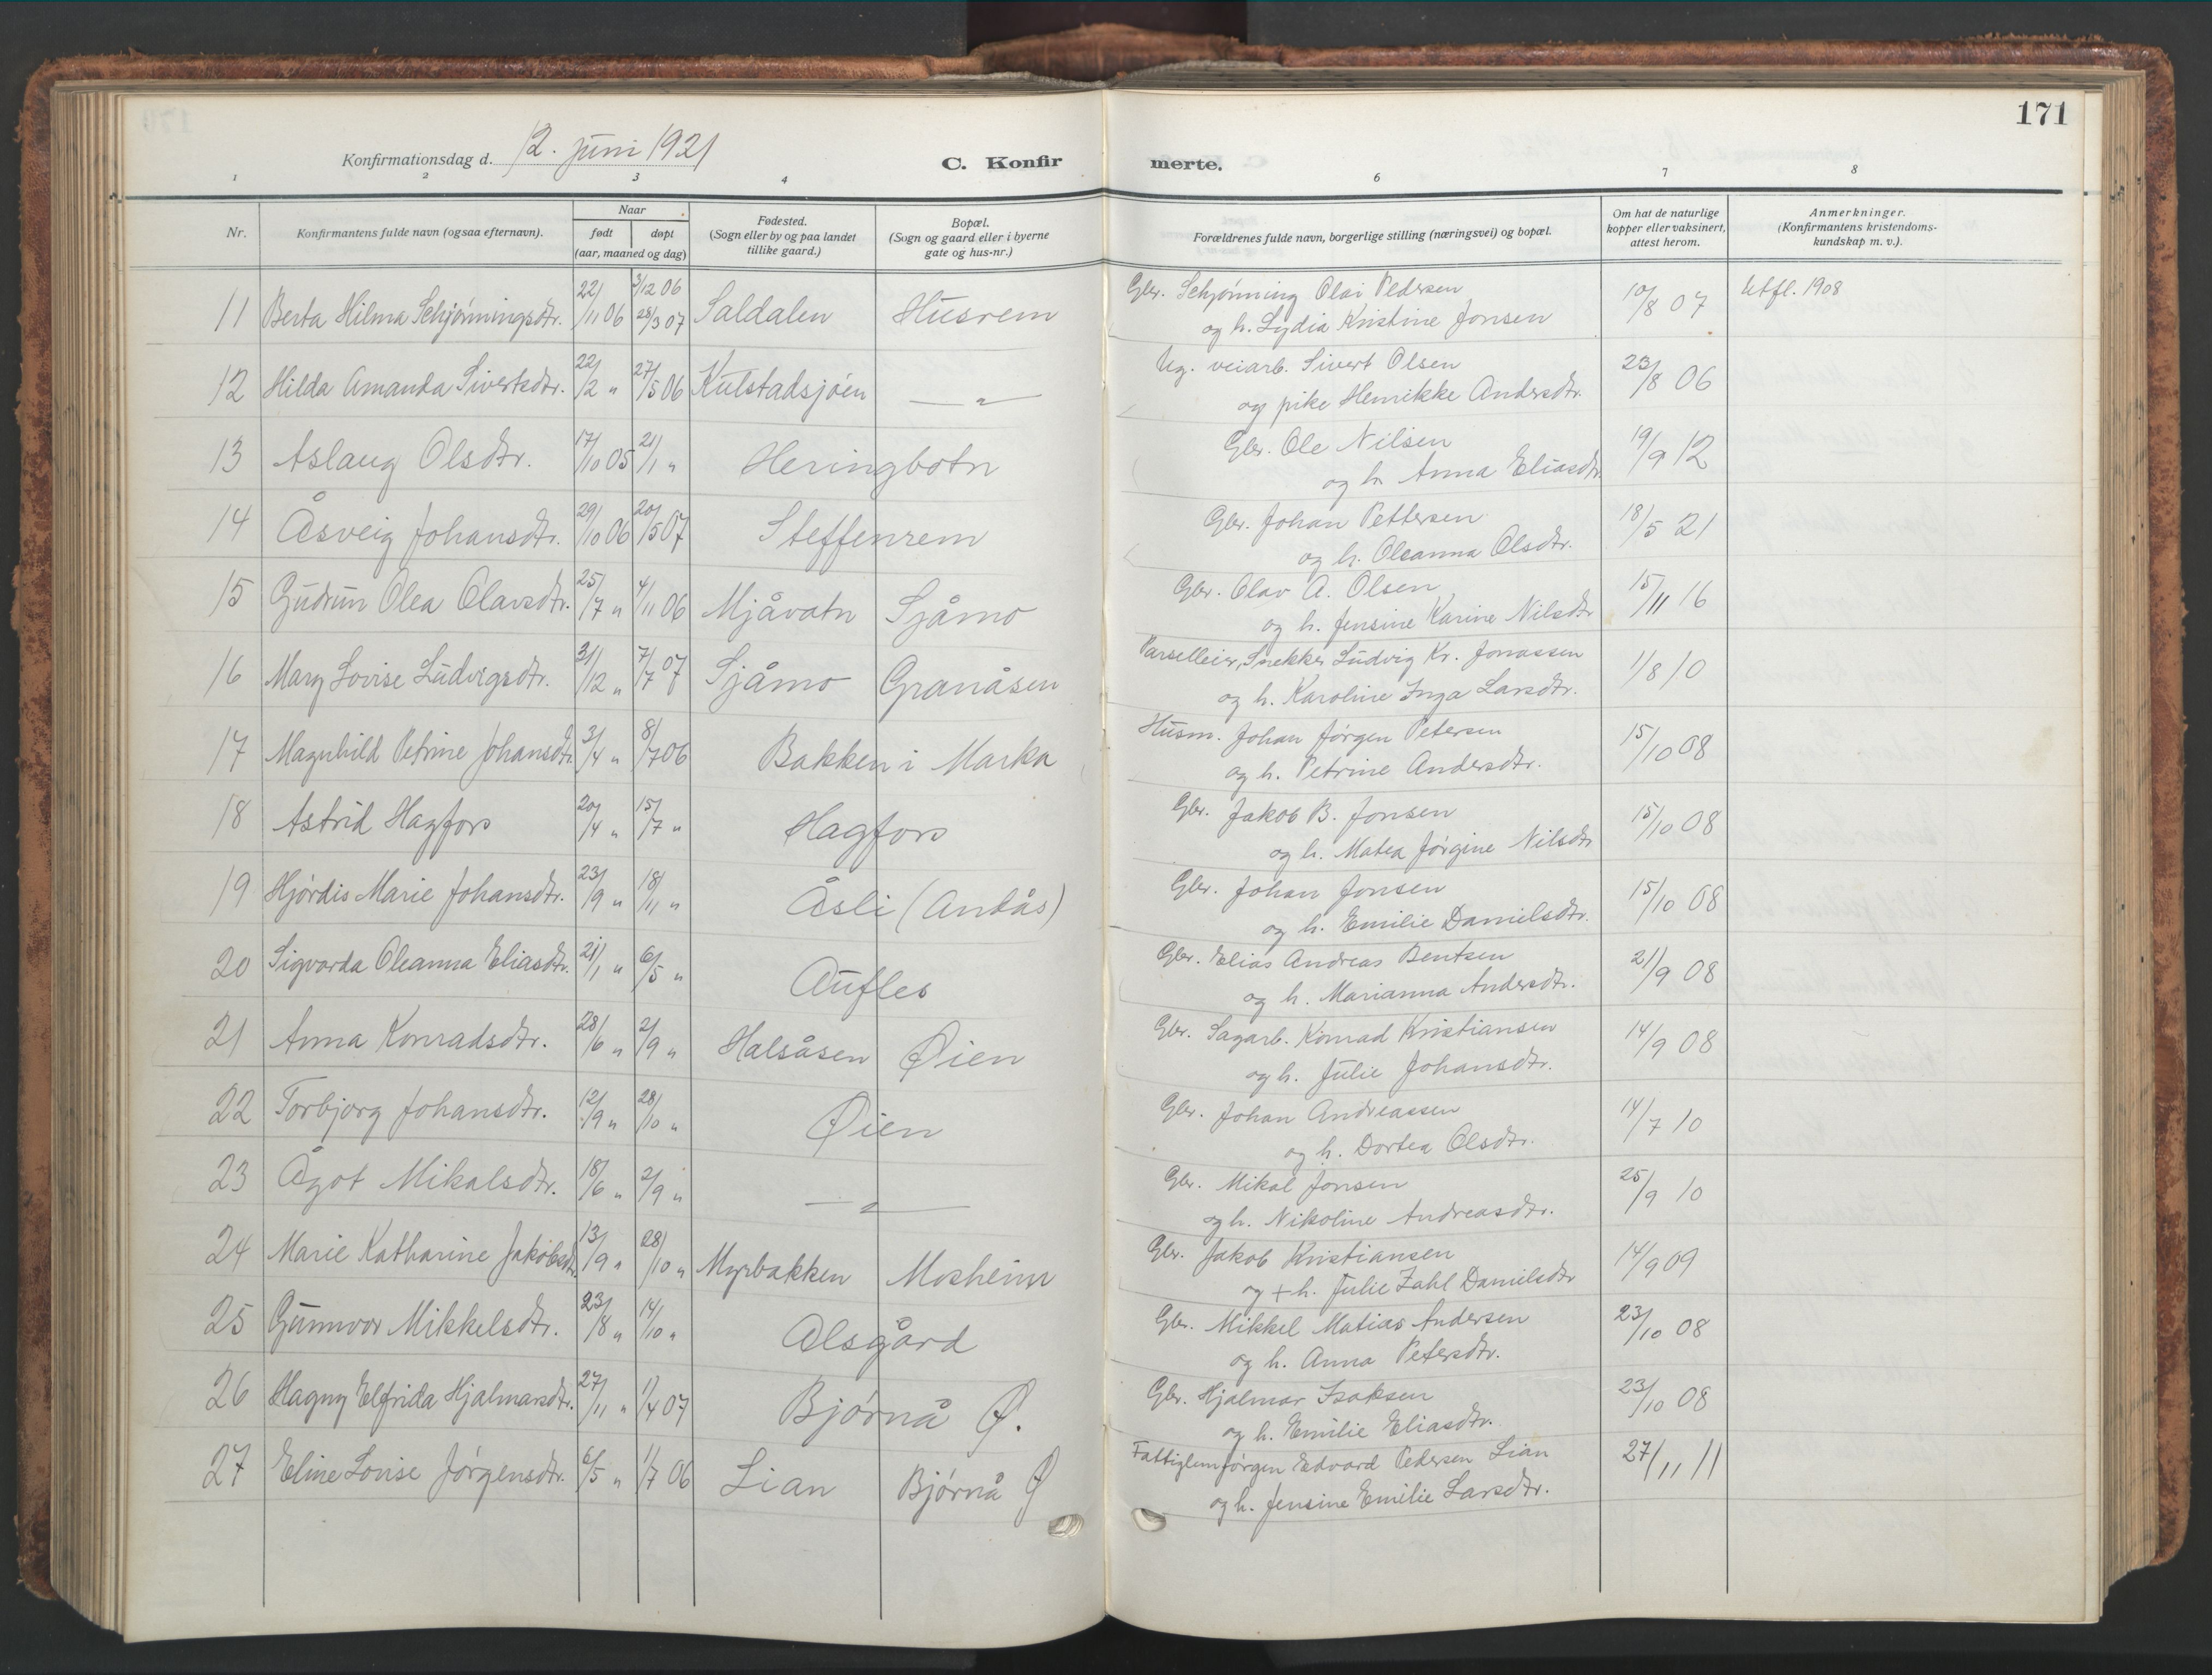 171
Konfirmationsdag d. 12. juni 1921
C. Konfirmerte.
1 2 3 4 6 7 8
Nr. Konfirmantens fulde navn (ogsaa efternavn). Naar født døpt (aar, maaned og dag) Fødested. (Sogn eller by og paa landet tillike gaard.) Bopæl. (Sogn og gaard eller i byerne gate og hus-nr.) Forældrenes fulde navn, borgerlige stilling (næringsvei) og bopæl. Om hat de naturlige kopper eller vaksinert, attest herom. Anmerkninger. (Konfirmantens kristendomskundskap m. v.).
11 Berta Hilma Schjønningsdtr. 22/11 06 3/12 06 28/3 07 Saldalen Husrem Gbr. Schjønning Olai Pedersen 10/8 07 Utfl. 1908
og h. Lydia Kristine Jonsen
12 Hilda Amanda Sivertsdtr. 22/2 " 27/5 06 Kulstadsjøen — " — Ug. veiarb. Sivert Olsen 23/8 06
og pike Henrikke Andersdtr.
13 Aslaug Olsdtr. 17/10 05 21/1 " Heringbotn Gbr. Ole Nilsen 19/9 12
og h. Anna Eliasdtr.
14 Åsveig Johansdtr. 29/10 06 20/5 07 Steffenrem Gbr. Johan Pettersen 18/5 21
og h. Oleanna Olsdtr.
15 Gudrun Olea Olavsdtr. 25/7 " 4/11 06 Mjåvatn Sjåmo Gbr. Olav A. Olsen 15/11 16
og h. Jensine Karine Nilsdtr
16 Mary Lovise Ludvigsdtr. 31/12 " 7/7 07 Sjåmo Granåsen Parselleier, Snekker Ludvig Kr. Jonassen 1/8 10
og h. Karoline Inga Larsdtr.
17 Magnhild Petrine Johansdtr. 3/4 " 8/7 06 Bakken i Marka Husm. Johan Jørgen Petersen 15/10 08
og h. Petrine Andersdtr.
18 Astrid Hagfors 20/4 " 15/7 " Hagfors Gbr. Jakob B. Jonsen 15/10 08
og h. Matea Jørgine Nilsdtr
19 Hjørdis Marie Johansdtr. 23/9 " 18/11 " Åsli (Andås) Gbr. Johan Jonsen 15/10 08
og h. Emilie Danielsdtr.
20 Sigvarda Oleanna Eliasdtr. 21/1 " 6/5 " Aufles Gbr. Elias Andreas Bentsen 21/9 08
og h. Marianna Andersdtr.
21 Anna Konradsdtr. 28/6 " 2/9 " Halsåsen Øien Gbr. Sagarb. Konrad Kristiansen 14/9 08
og h. Julie Johansdtr.
22 Torbjorg Johansdtr. 12/9 " 28/10 " Øien Gbr. Johan Andreassen 14/7 10
og h. Dortea Olsdtr.
23 Ågot Mikalsdtr. 18/6 " 2/9 " — " — Gbr. Mikal Jonsen 25/9 10
og h. Nikoline Andreasdtr.
24 Marie Katharine Jakobsdtr. 13/9 " 28/10 " Myrbakken Mosheim Gbr. Jakob Kristiansen 14/9 09
og + h. Julie Zahl Danielsdtr
25 Gunnvor Mikkelsdtr. 23/8 " 14/10 " Alsgård Gbr. Mikkel Matias Andersen 23/10 08
og h. Anna Petersdtr.
26 Hagny Elfrida Hjalmarsdtr. 27/11 " 1/4 07 Bjørnå Ø. Gbr. Hjalmar Isaksen 23/10 08
og h. Emilie Eliasdtr.
27 Eline Lovise Jørgensdtr. 6/5 " 1/7 06 Lian Bjørnå Ø Fattiglem Jørgen Edvard Pedersen Lian 27/11 11
og h. Jensine Emilie Larsdtr.